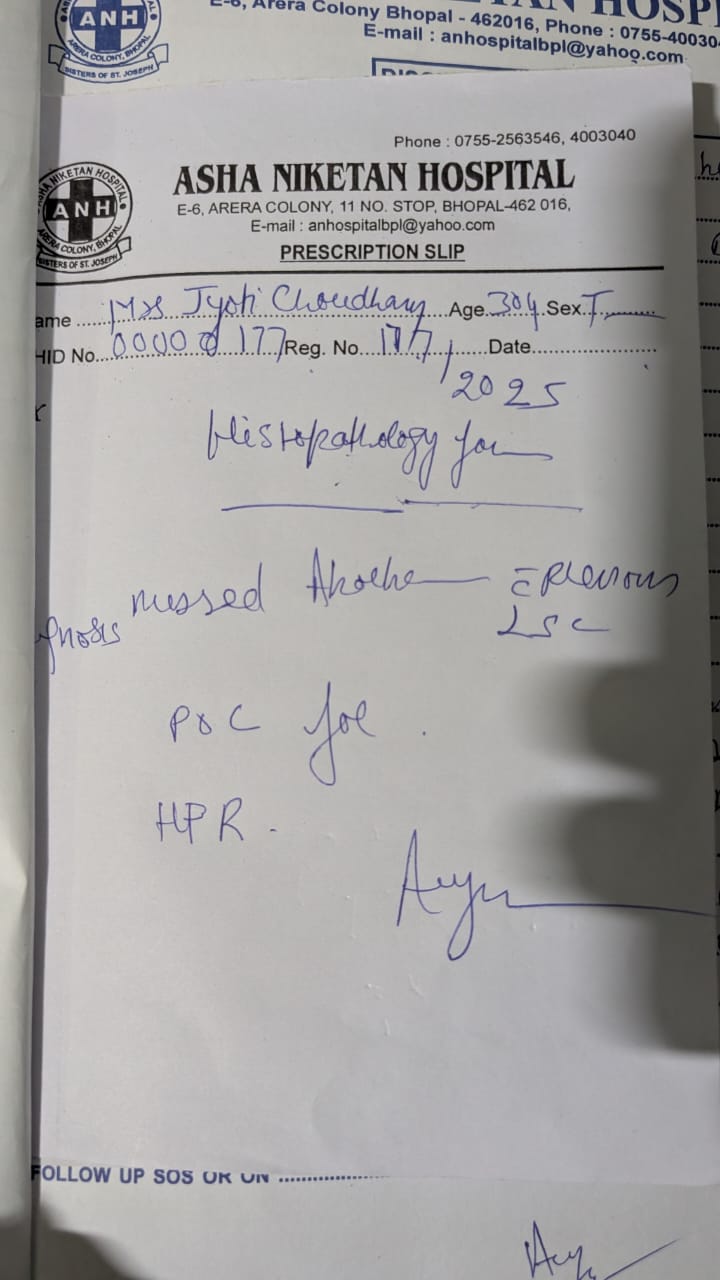 ANH
ARERA COLONY, BHOPAL
SISTERS OF ST. JOSEPH
HOSPI
E-6, Arera Colony Bhopal - 462016, Phone : 0755-40030
E-mail : anhospitalbpl@yahoo.com
Phone : 0755-2563546, 4003040
ASHA NIKETAN HOSPITAL
ANH
ARERA COLONY, BHOPAL
SISTERS OF ST. JOSEPH
ASHA NIKETAN HOSPITAL
E-6, ARERA COLONY, 11 NO. STOP, BHOPAL-462 016,
E-mail : anhospitalbpl@yahoo.com
PRESCRIPTION SLIP
ame Mrs Jyoti Choudhary Age 30y Sex F
HID No. Reg. No. 17/7/ Date
2025
Histopathology form
missed
gnosis LSC
POC for
HPR.
FOLLOW UP SOS OR ON